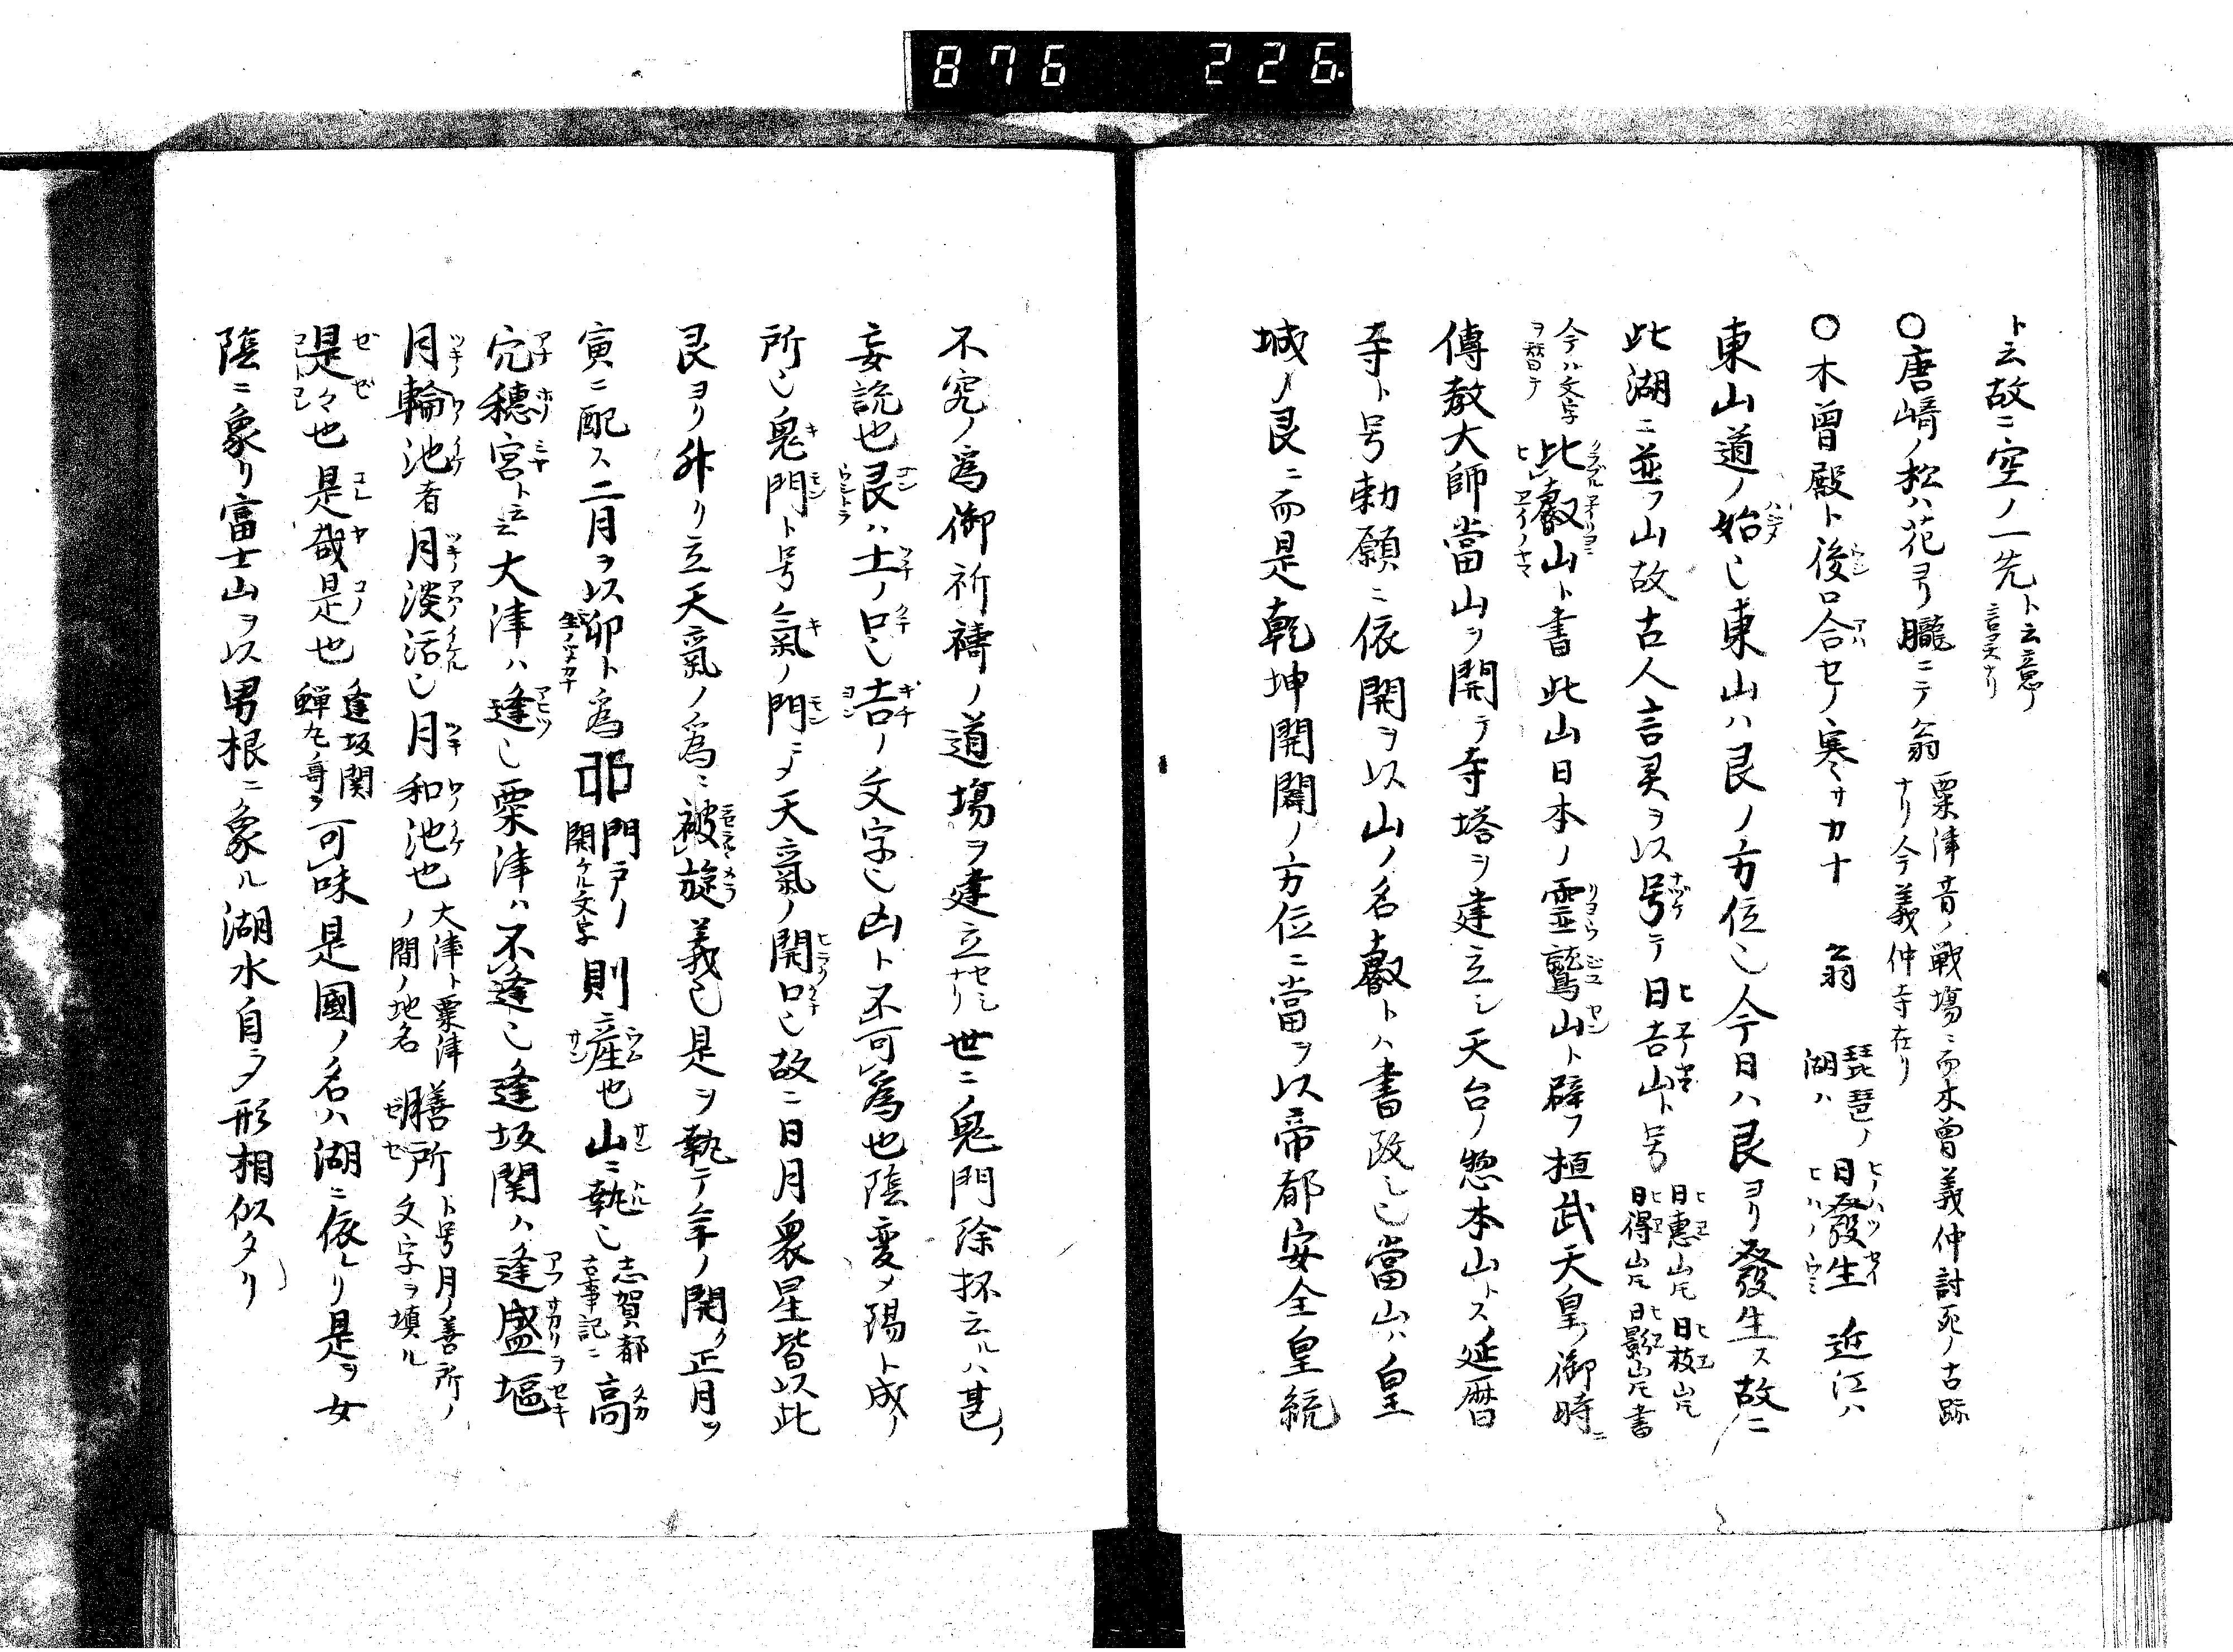 876 226
ト云故ニ空ノ一先ト云意ノ言ヲスナリ
〇唐﨑ノ松ハ花ヨリ朧ニテ 翁 粟津昔ノ戰塲ニ而木曽義仲討死ノ古跡ナリ今義仲寺在リ
〇木曽殿ト後ロ合セノ寒サカナ 翁 琵琶ノ湖ハ 日發生 近江ハ
東山道ノ始也東山ハ艮ノ方位也今日ハ艮ヨリ發生ス故ニ
此湖ニ並フ山故古人言灵ヲ以号テ日吉山ト号 日惠山氏 日枝山氏 日得山氏 日影山氏書
今ハ文字ヲ替テ 比叡山ト書此山日本ノ靈鷲山ト辟フ桓武天皇ノ御時ニ
傳教大師當山ヲ開テ寺塔ヲ建立シ天台ノ惣本山トス延暦
寺ト号勅願ニ依開ヲ以山ノ名叡トハ書改シ也當山ハ皇
城ノ艮ニ而是乾坤開闢ノ方位ニ當ヲ以帝都安全皇統
不窮ノ為御祈禱ノ道塲ヲ建立セシナリ世ニ鬼門除抔云ルハ甚ノ
妄説也艮ハ土ノ口也吉ノ文字也凶ト不可為也陰変メ陽ト成ノ
所也鬼門ト号氣ノ門ニメ天氣ノ開口也故ニ日月衆星皆以此
艮ヨリ外リ立天氣ノ為ニ被旋義也是ヲ執テ年ノ開ク正月ヲ
寅ニ配ス二月ヲ以卯ト為 門戸ノ開ケル文字 則産也山ニ執也 志賀都 古事記ニ 高
穴穂宮ト云云大津ハ逢也粟津ハ不逢也逢坂関ハ逢盛堰
月輪池者月淡活也月和池也 大津ト粟津ノ間ノ地名 膳所ト号月ノ善所ノ文字ヲ填ル
是々也是哉是也 逢坂関蝉丸ノ哥ヲ 可味是國ノ名ハ湖ニ依レリ是ヲ女
陰ニ象リ富士山ヲ以男根ニ象ル湖水自ラ形相似タリ